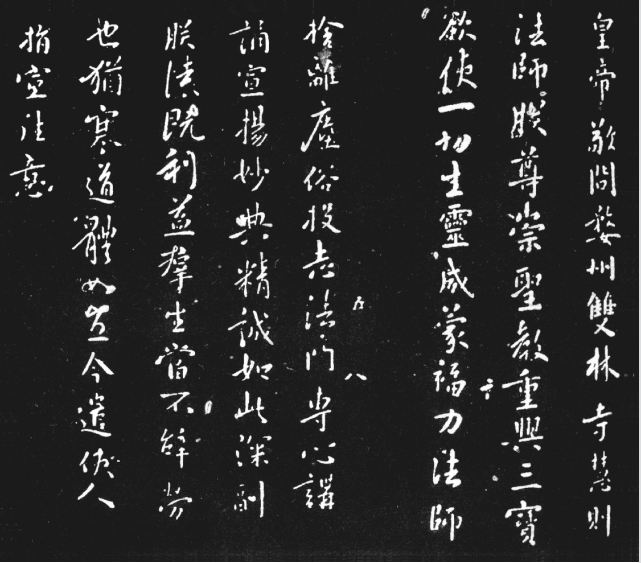 皇帝敬問婺州雙林寺慧則
法師朕尊崇聖教重興三寶
欲使一切生靈咸蒙福力法師
捨離塵俗投志法門專心講
誦宣揚妙典精誠如此深副
朕懷既利益羣生當不辭勞
也猶寒道體如宜今遣使人
指宣往意